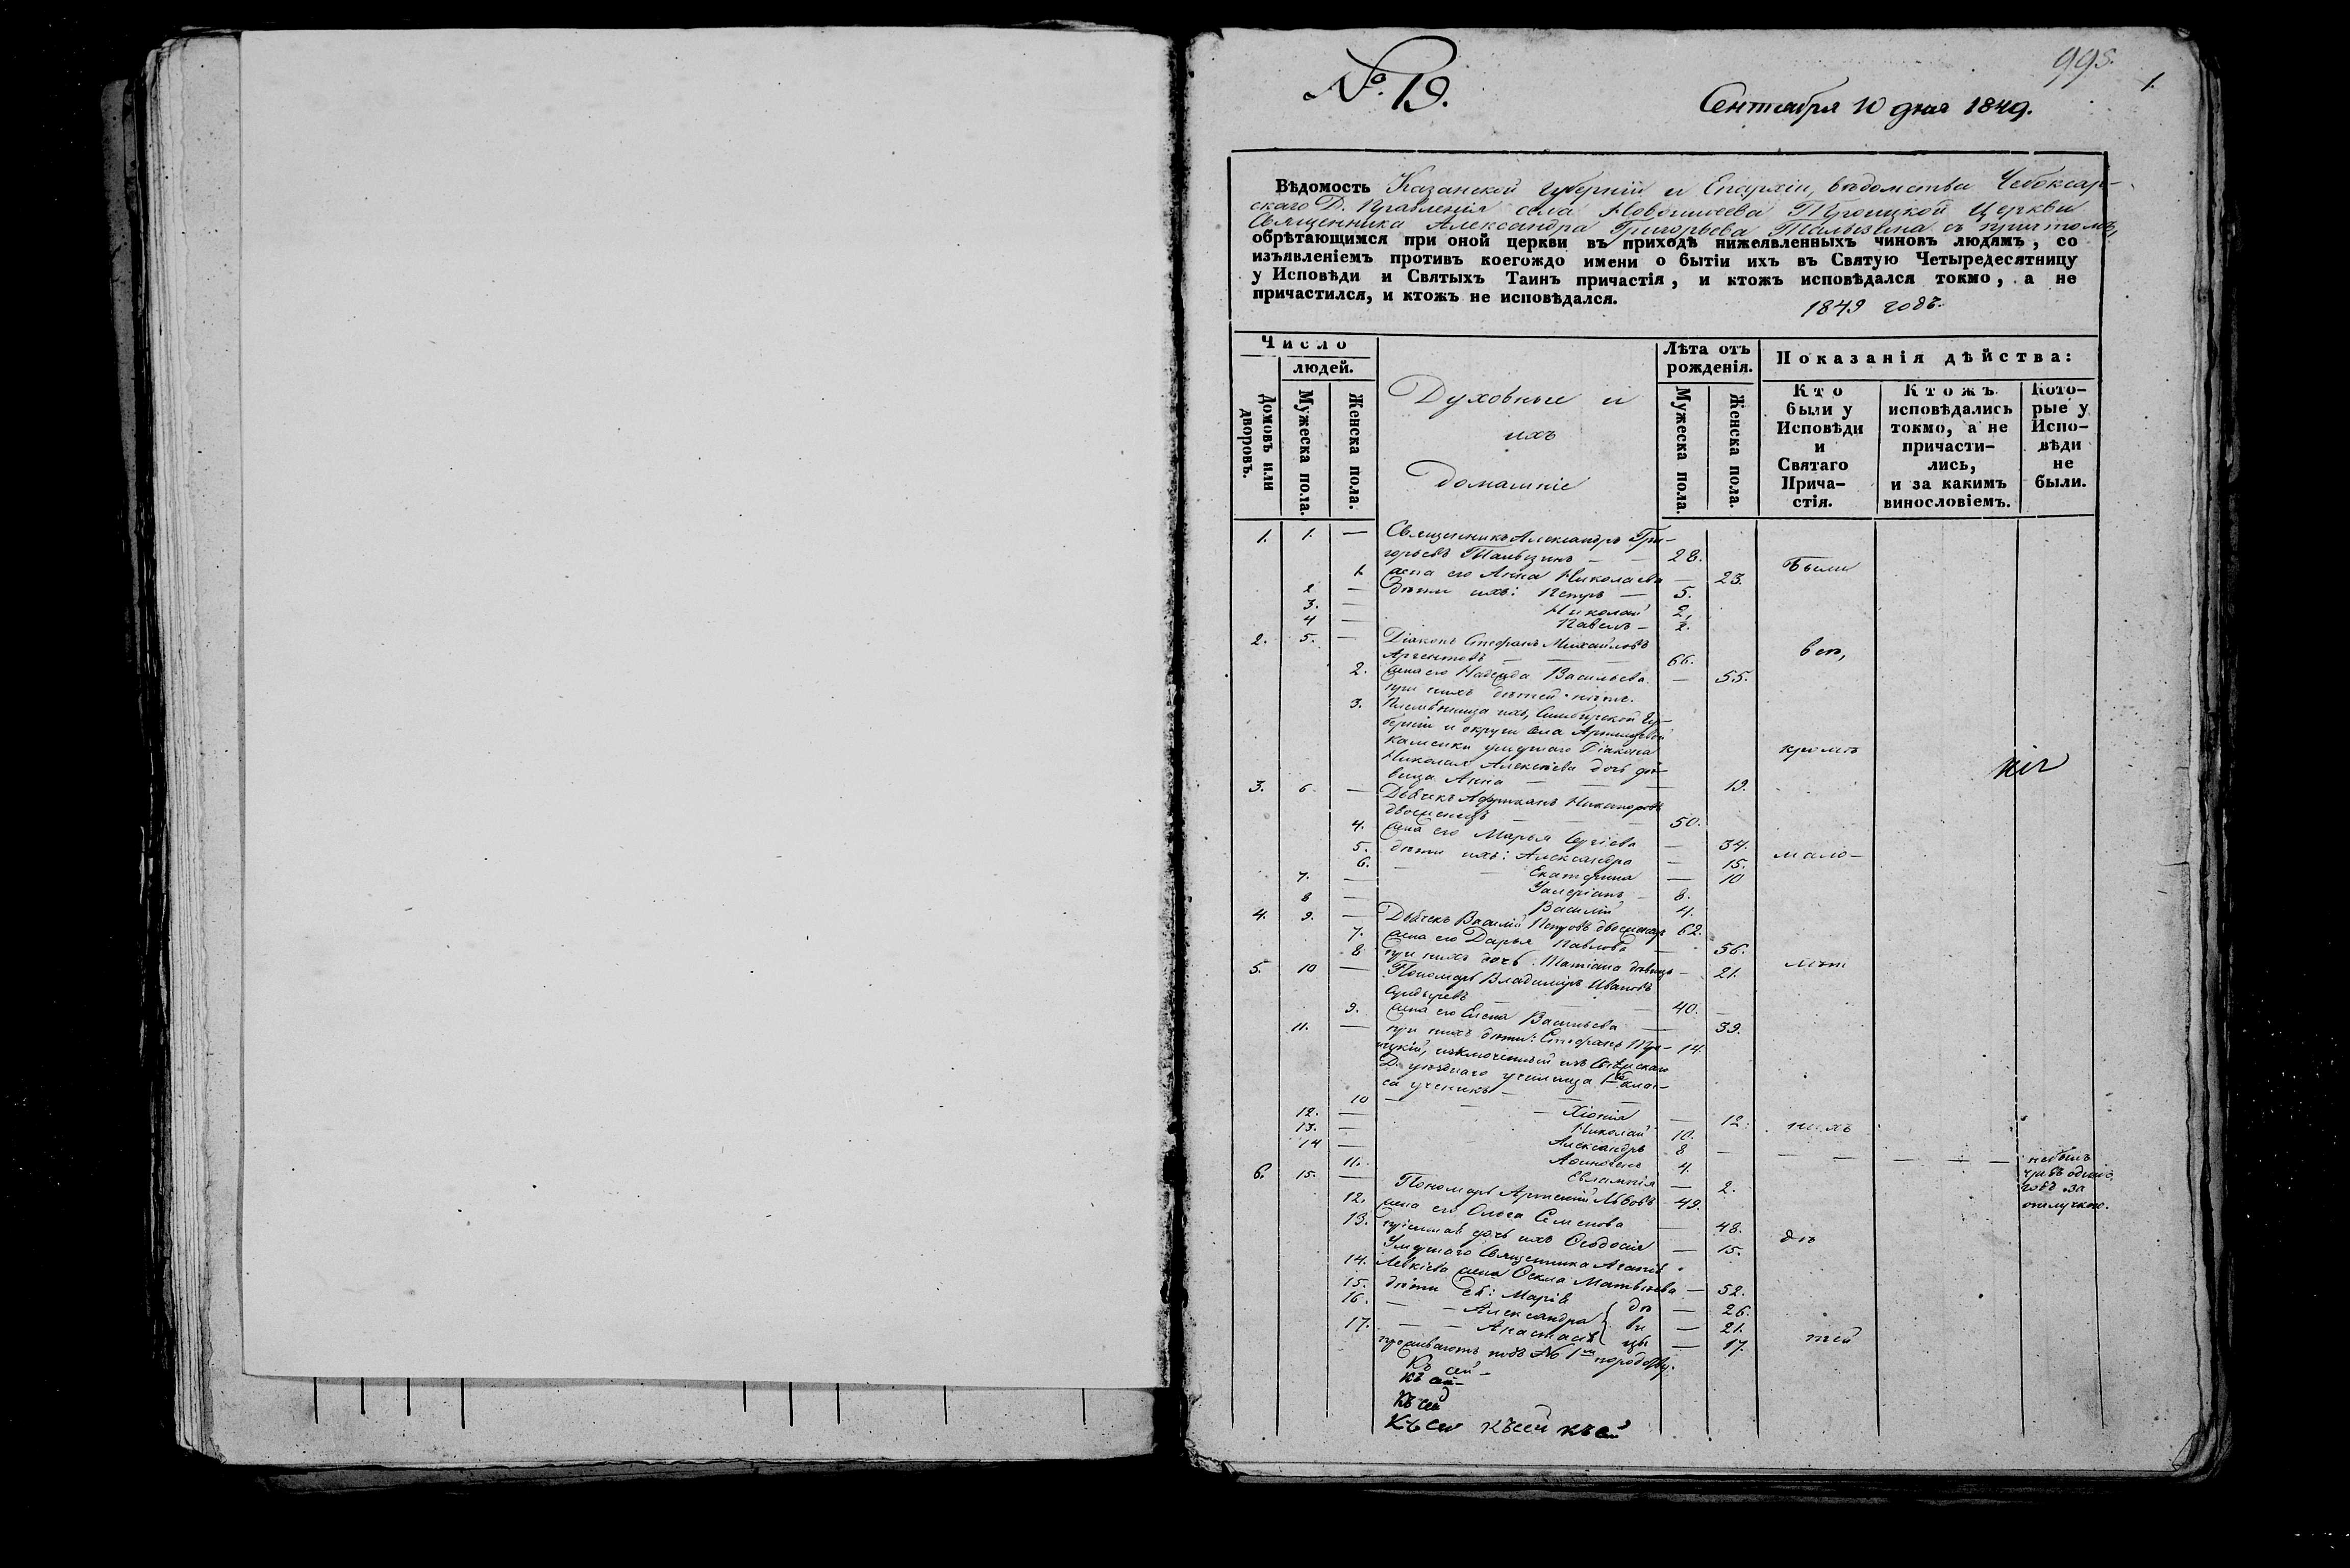 995.
1.
№. 19.
Сентября 10 дня 1849.
Вѣдомость Казанской губерніи и Епархіи, вѣдомства Чебоксар-
скаго Д. Правленія села Троицкой Церкви
Священника Александра Григорьева Тальезина съ причтомъ,
обрѣтающимся при оной церкви въ приходѣ нижеявленныхъ чиновъ людямъ, со
изъявленіемъ противъ коегождо имени о бытіи ихъ въ Святую Четыредесятницу
у Исповѣди и Святыхъ Таинъ причастія, и ктожъ исповѣдался токмо, а не
причастился, и ктожъ не исповѣдался.
1849 годъ.
Число
людей.
Домовъ или дворовъ.
Мужеска пола.
Женска пола.
Духовные и
ихъ
домашніе
Лѣта отъ
рожденія.
Мужеска пола.
Женска пола.
Показанія дѣйства:
Кто
были у
Исповѣди
и
Святаго
Прича-
стія.
Ктожъ
исповѣдались
токмо, а не
причасти-
лись,
и за какимъ
винословіемъ.
Кото-
рые у
Испо-
вѣди
не
были.
1. 1. — Священникъ Александръ Гри-
горьевъ Тальезинъ — 28. Были
1. жена его Анна Николаева — 23.
2 — дѣти ихъ: Петръ — 5.
3. — Николай 2,
4 — Павелъ — 2.
2. 5. — Діаконъ Стефанъ Михайловъ
Аргентовъ — 66. всѣ,
2. жена его Надежда Васильева — 55.
при нихъ дѣтей нѣтъ.
3. Племѣнница ихъ, Симбирской Гу-
берніи и округи села
Каменки умершаго Діакона кромѣ
Николая Алексѣева дочь дѣ-
вица Анна — 19.
3. 6 — Дьячекъ Африканъ Никаноровъ
двоеженецъ — 50.
4. жена его Марья Сергіева — 34.
5. дѣти ихъ: Александра — 15. мало-
6. — Екатерина — 10
7. — Уалеріанъ — 8.
8 — Василій 4.
4. 9. — Дьячекъ Василій Петровъ двоеженецъ 62.
7. жена его Дарья Павлова — 56.
8 при нихъ дочь Татіана дѣвица — 21. лѣт
5. 10 — Пономарь Владиміръ Ивановъ
— 40.
9. жена его Елена Васильева — 39.
11. — при нихъ дѣти: Стефанъ Тро- 14.
ицкій, изключенный изъ
Д. уѣзднаго училища 1 клас-
са ученикъ —
10 — — Хіонія — 12. нихъ
12. — Николай 10.
13. — Александръ 8
14 — Аѳиногенъ 4.
11. Евлампія — 2.
6. 15. — Пономарь Арсеній Львовъ 49. — небылъ
чрезъ одинъ
годъ за
отлучкою.
12. жена его Ольга Семенова — 48.
13. дочь ихъ Ѳеодосія — 15. дѣ
Умершаго Священника
14. Левкіева жена Ѳекла Матвѣева — 52.
15. дѣти ея: Марія дѣ — 26.
16. — — Александра ви — 21.
17. — — Анастасія цы — 17. тей
проживаютъ подъ № 1м по родству.
Къ сей —
Къ сей
Къ сей
Къ сей Къ сей къ сей